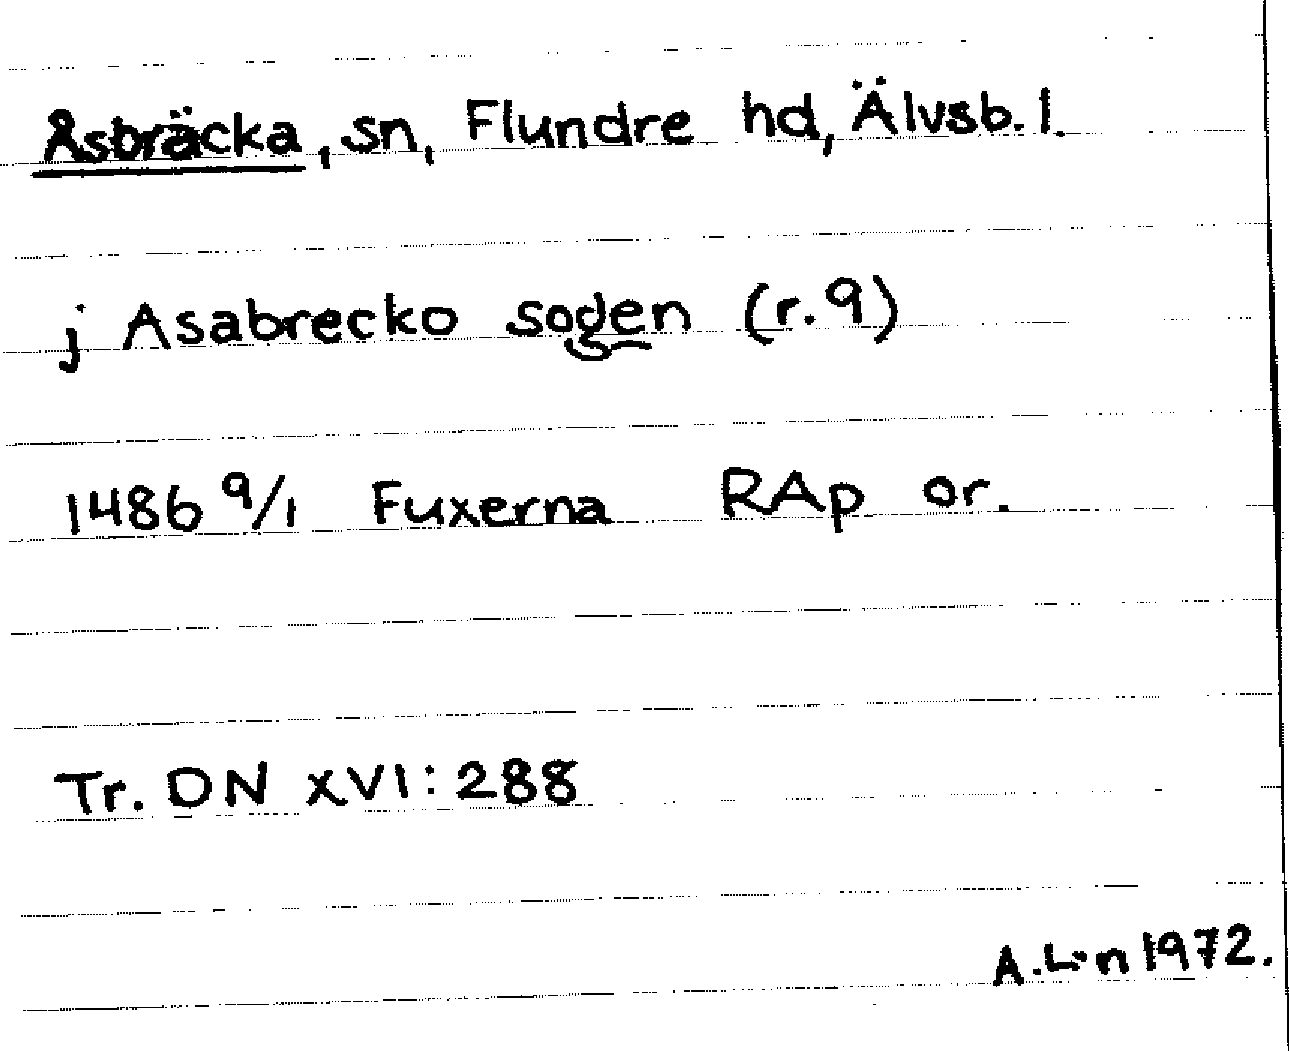 Åsbräcka, sn, Flundre hd, Älvsb. l.
j Asabrecko sogen (r.9)
1486 9/1 Fuxerna RAp or.
Tr. DN XVI:288
A.L:n 1972.